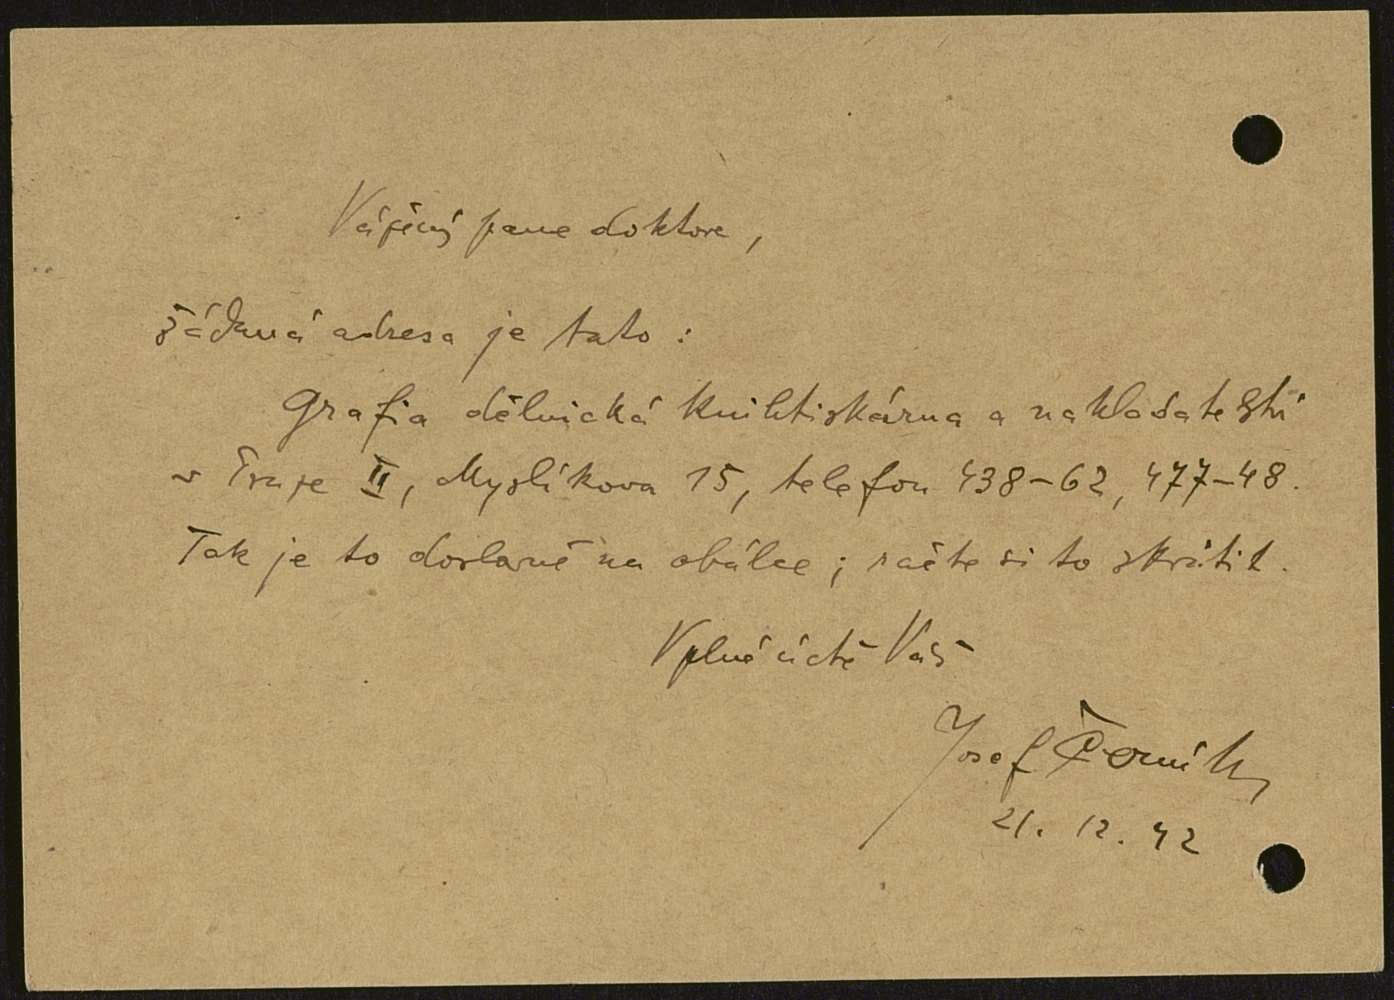 Vážený pane doktore,
žádaná adresa je tato:
Grafia dělnická knihtiskárna a nakladatelství
v Praze II, Myslíkova 15, telefon 438-62, 477-48.
Tak je to doslovně na obálce; račte si to zkrátit.
V plné úctě Váš
Josef Černík
21. 12. 42